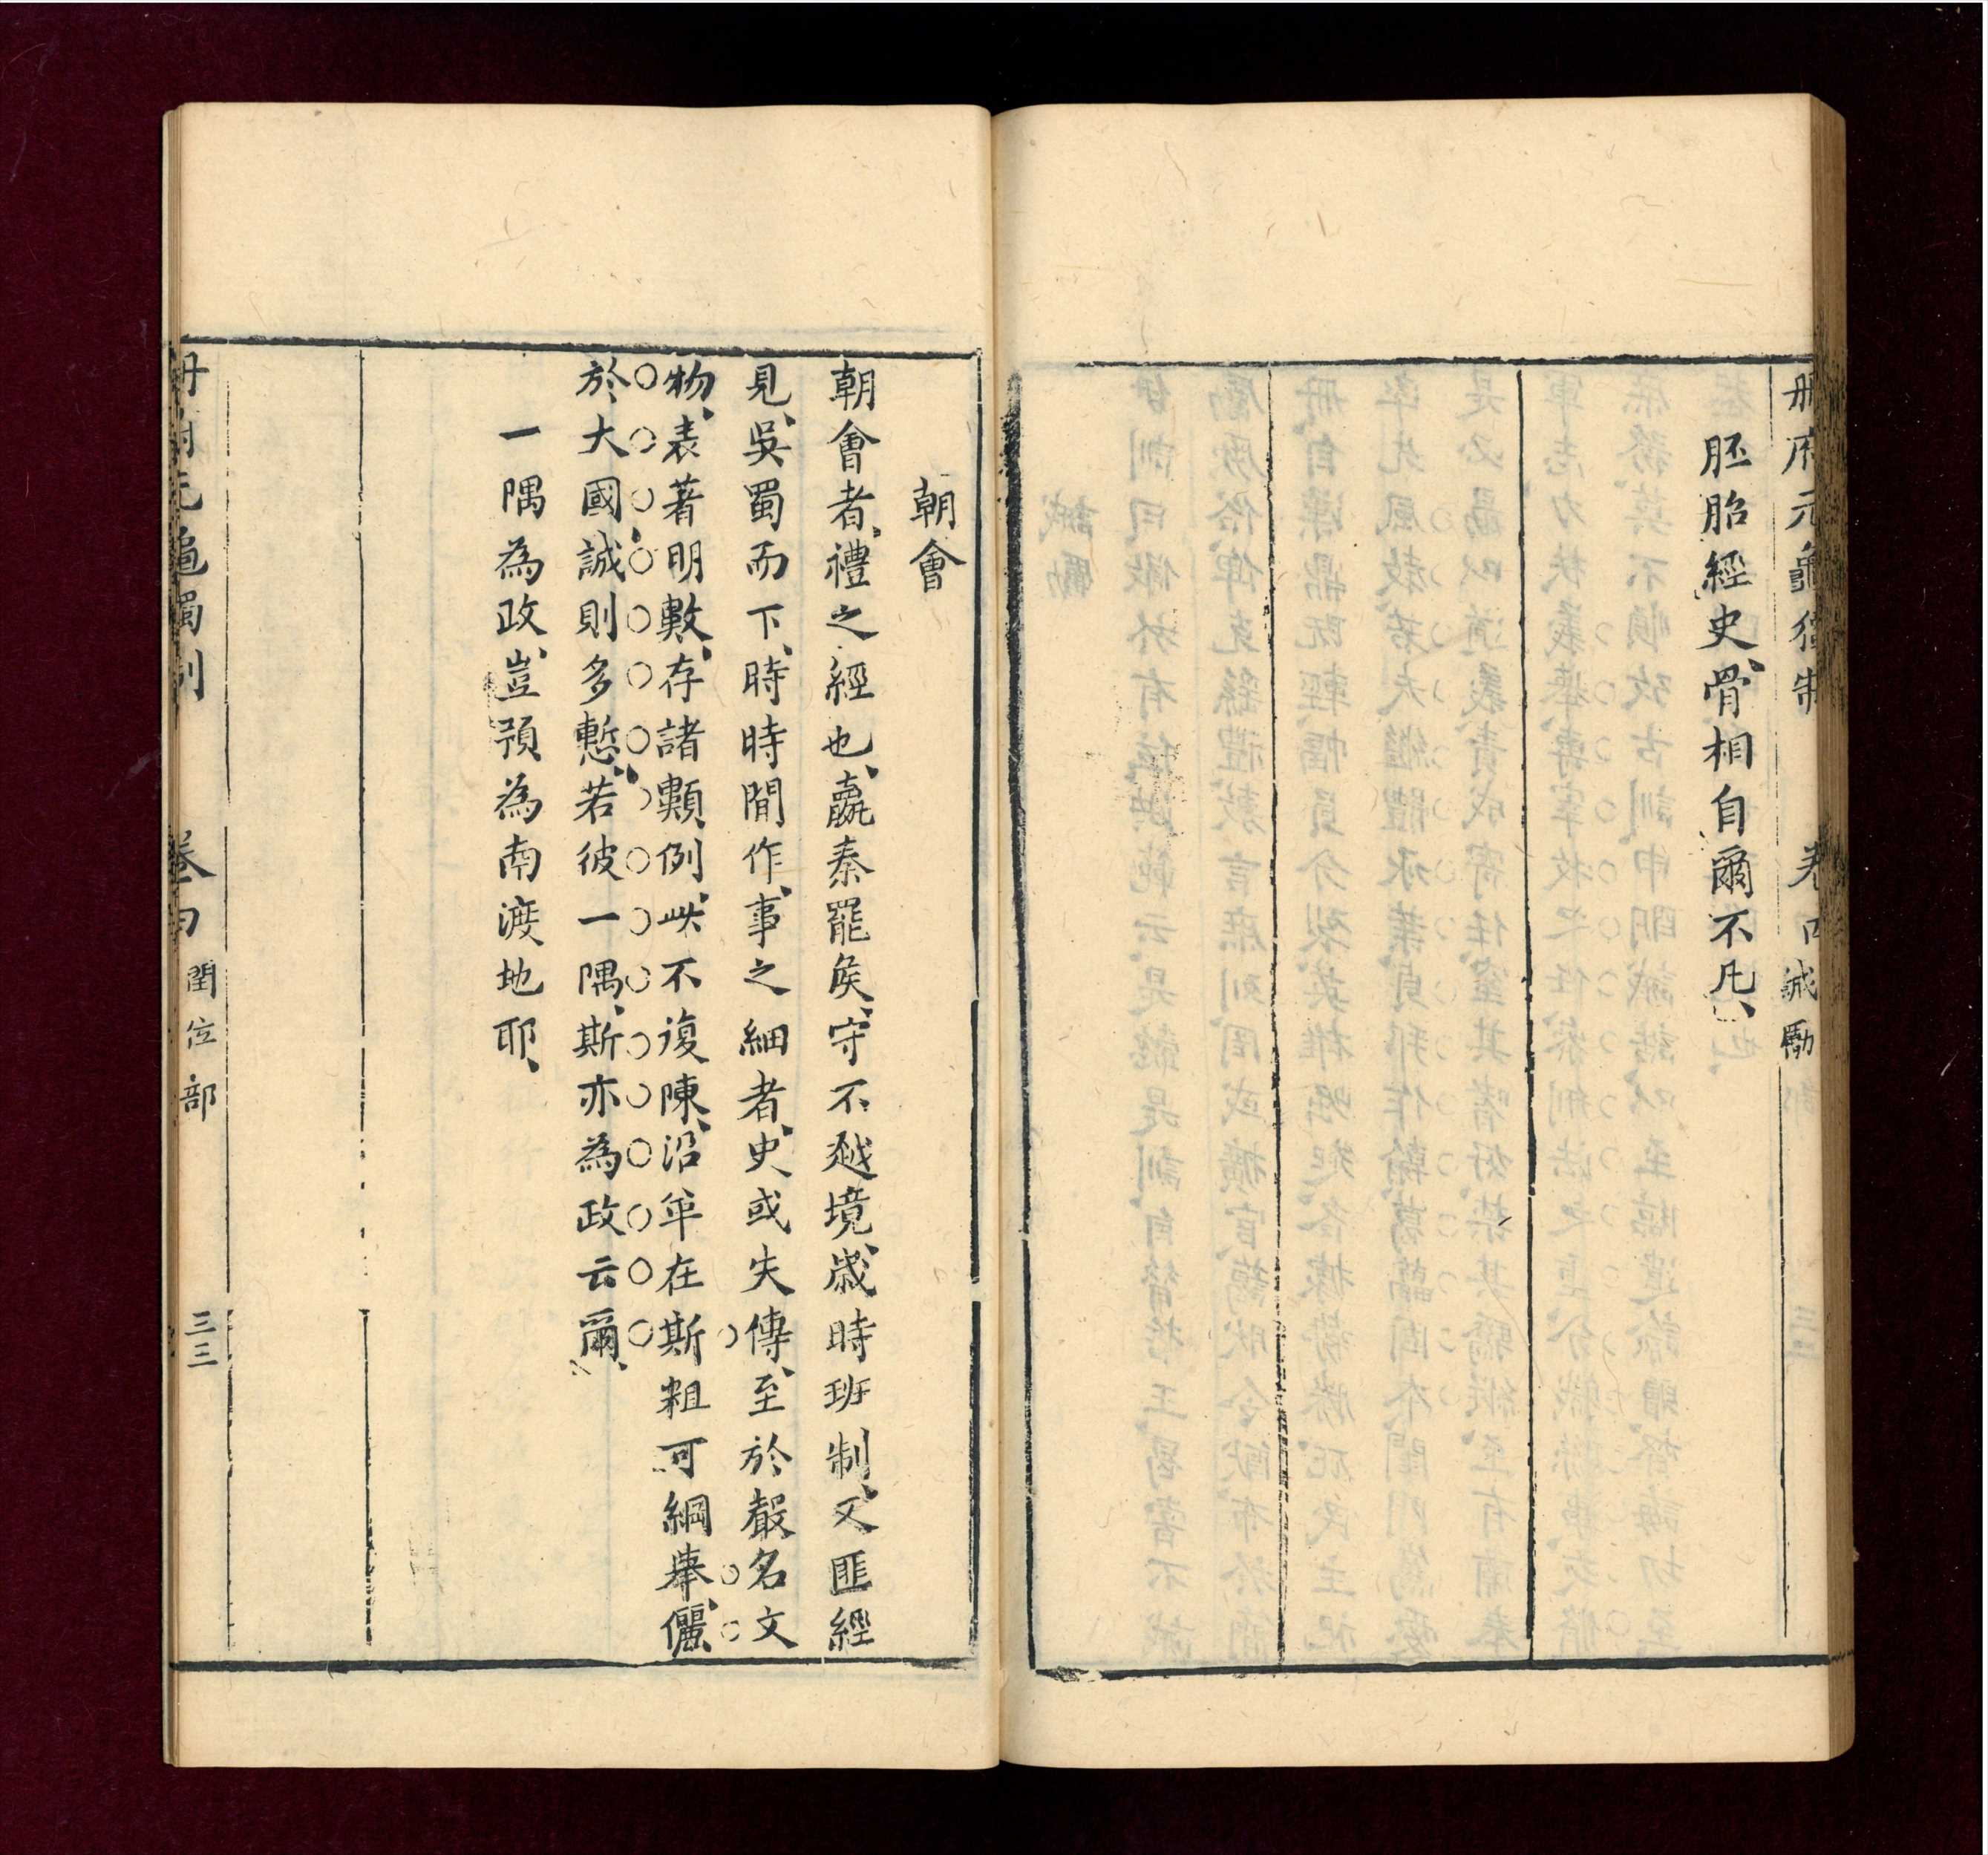 册府元龜獨制 卷四 誡勵
胚胎經史、骨相自爾不凡、
朝會
朝會者、禮之經也、嬴秦罷矦、守不越境、歲時班制、又匪經
見、吳蜀而下、時時間作、事之細者、史或失傳、至於聲名文
物、表著明數、存諸類例、此不復陳、沿革在斯粗可綱舉、儷
於大國、誠則多慙、若彼一隅、斯亦為政云爾、
一隅為政、豈預為南渡地耶、
册府元龜獨制 卷四 閏位部 三三